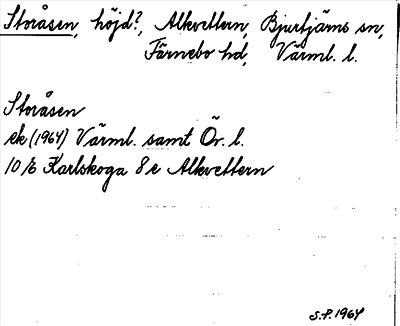 Storåsen, höjd?, Alkvettern, Bjurtjärns sn,
Färnebo hd, Värml. l.
Storåsen
ek (1964) Värml. samt Ör. l.
10 E Karlskoga 8 e Alkvettern
S.P. 1964